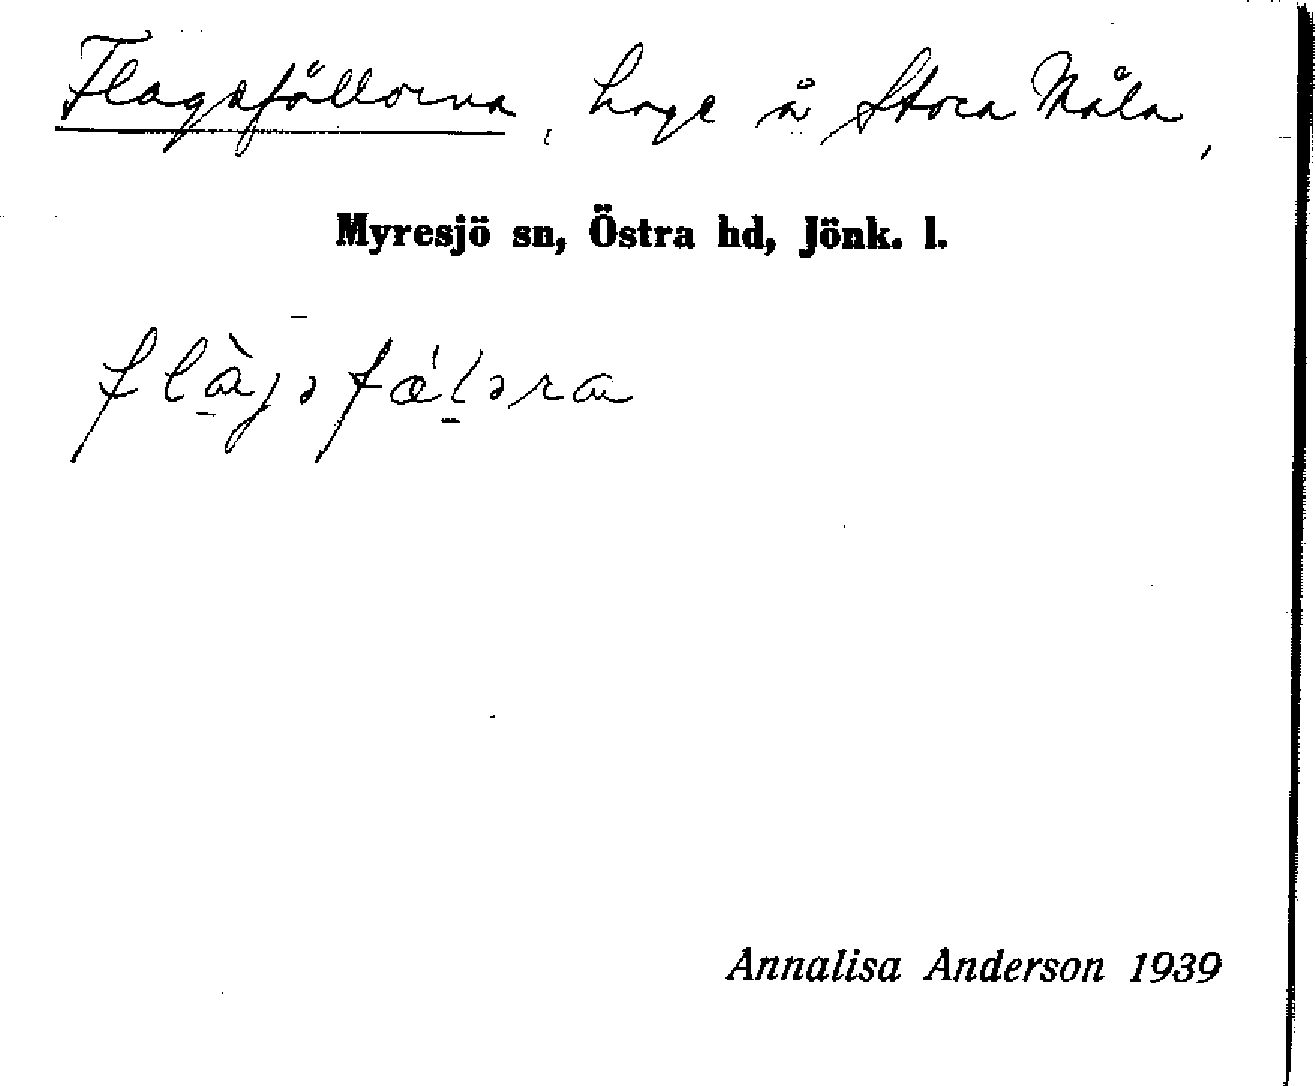 Flagefällorna, hage å Stora Måla,
Myresjö sn, Östra hd, Jönk. l.
Annalisa Anderson 1939